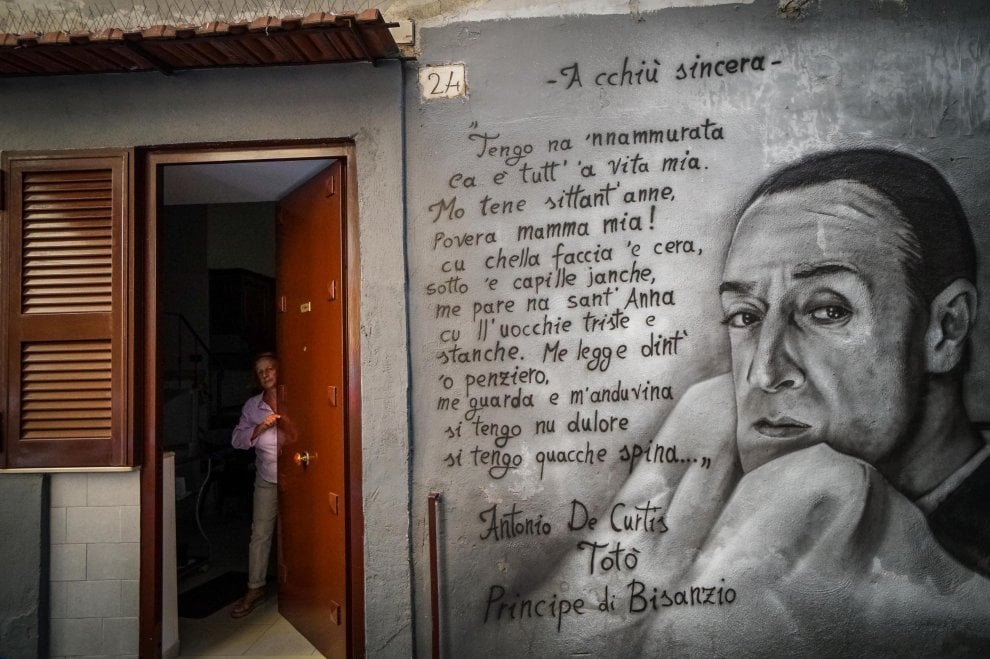 24
- A cchiù sincera -
"Tengo na 'nnammurata
ca è tutt' 'a vita mia.
Mo tene sittant'anne,
Povera mamma mia!
cu chella faccia 'e cera,
sotto 'e capille janche,
me pare na sant'Anna
cu ll'uocchie triste e
stanche. Me legge dint'
'o penziero,
me guarda e m'anduvina
si tengo nu dulore
si tengo quacche spina..."
Antonio De Curtis
Totò
Principe di Bisanzio